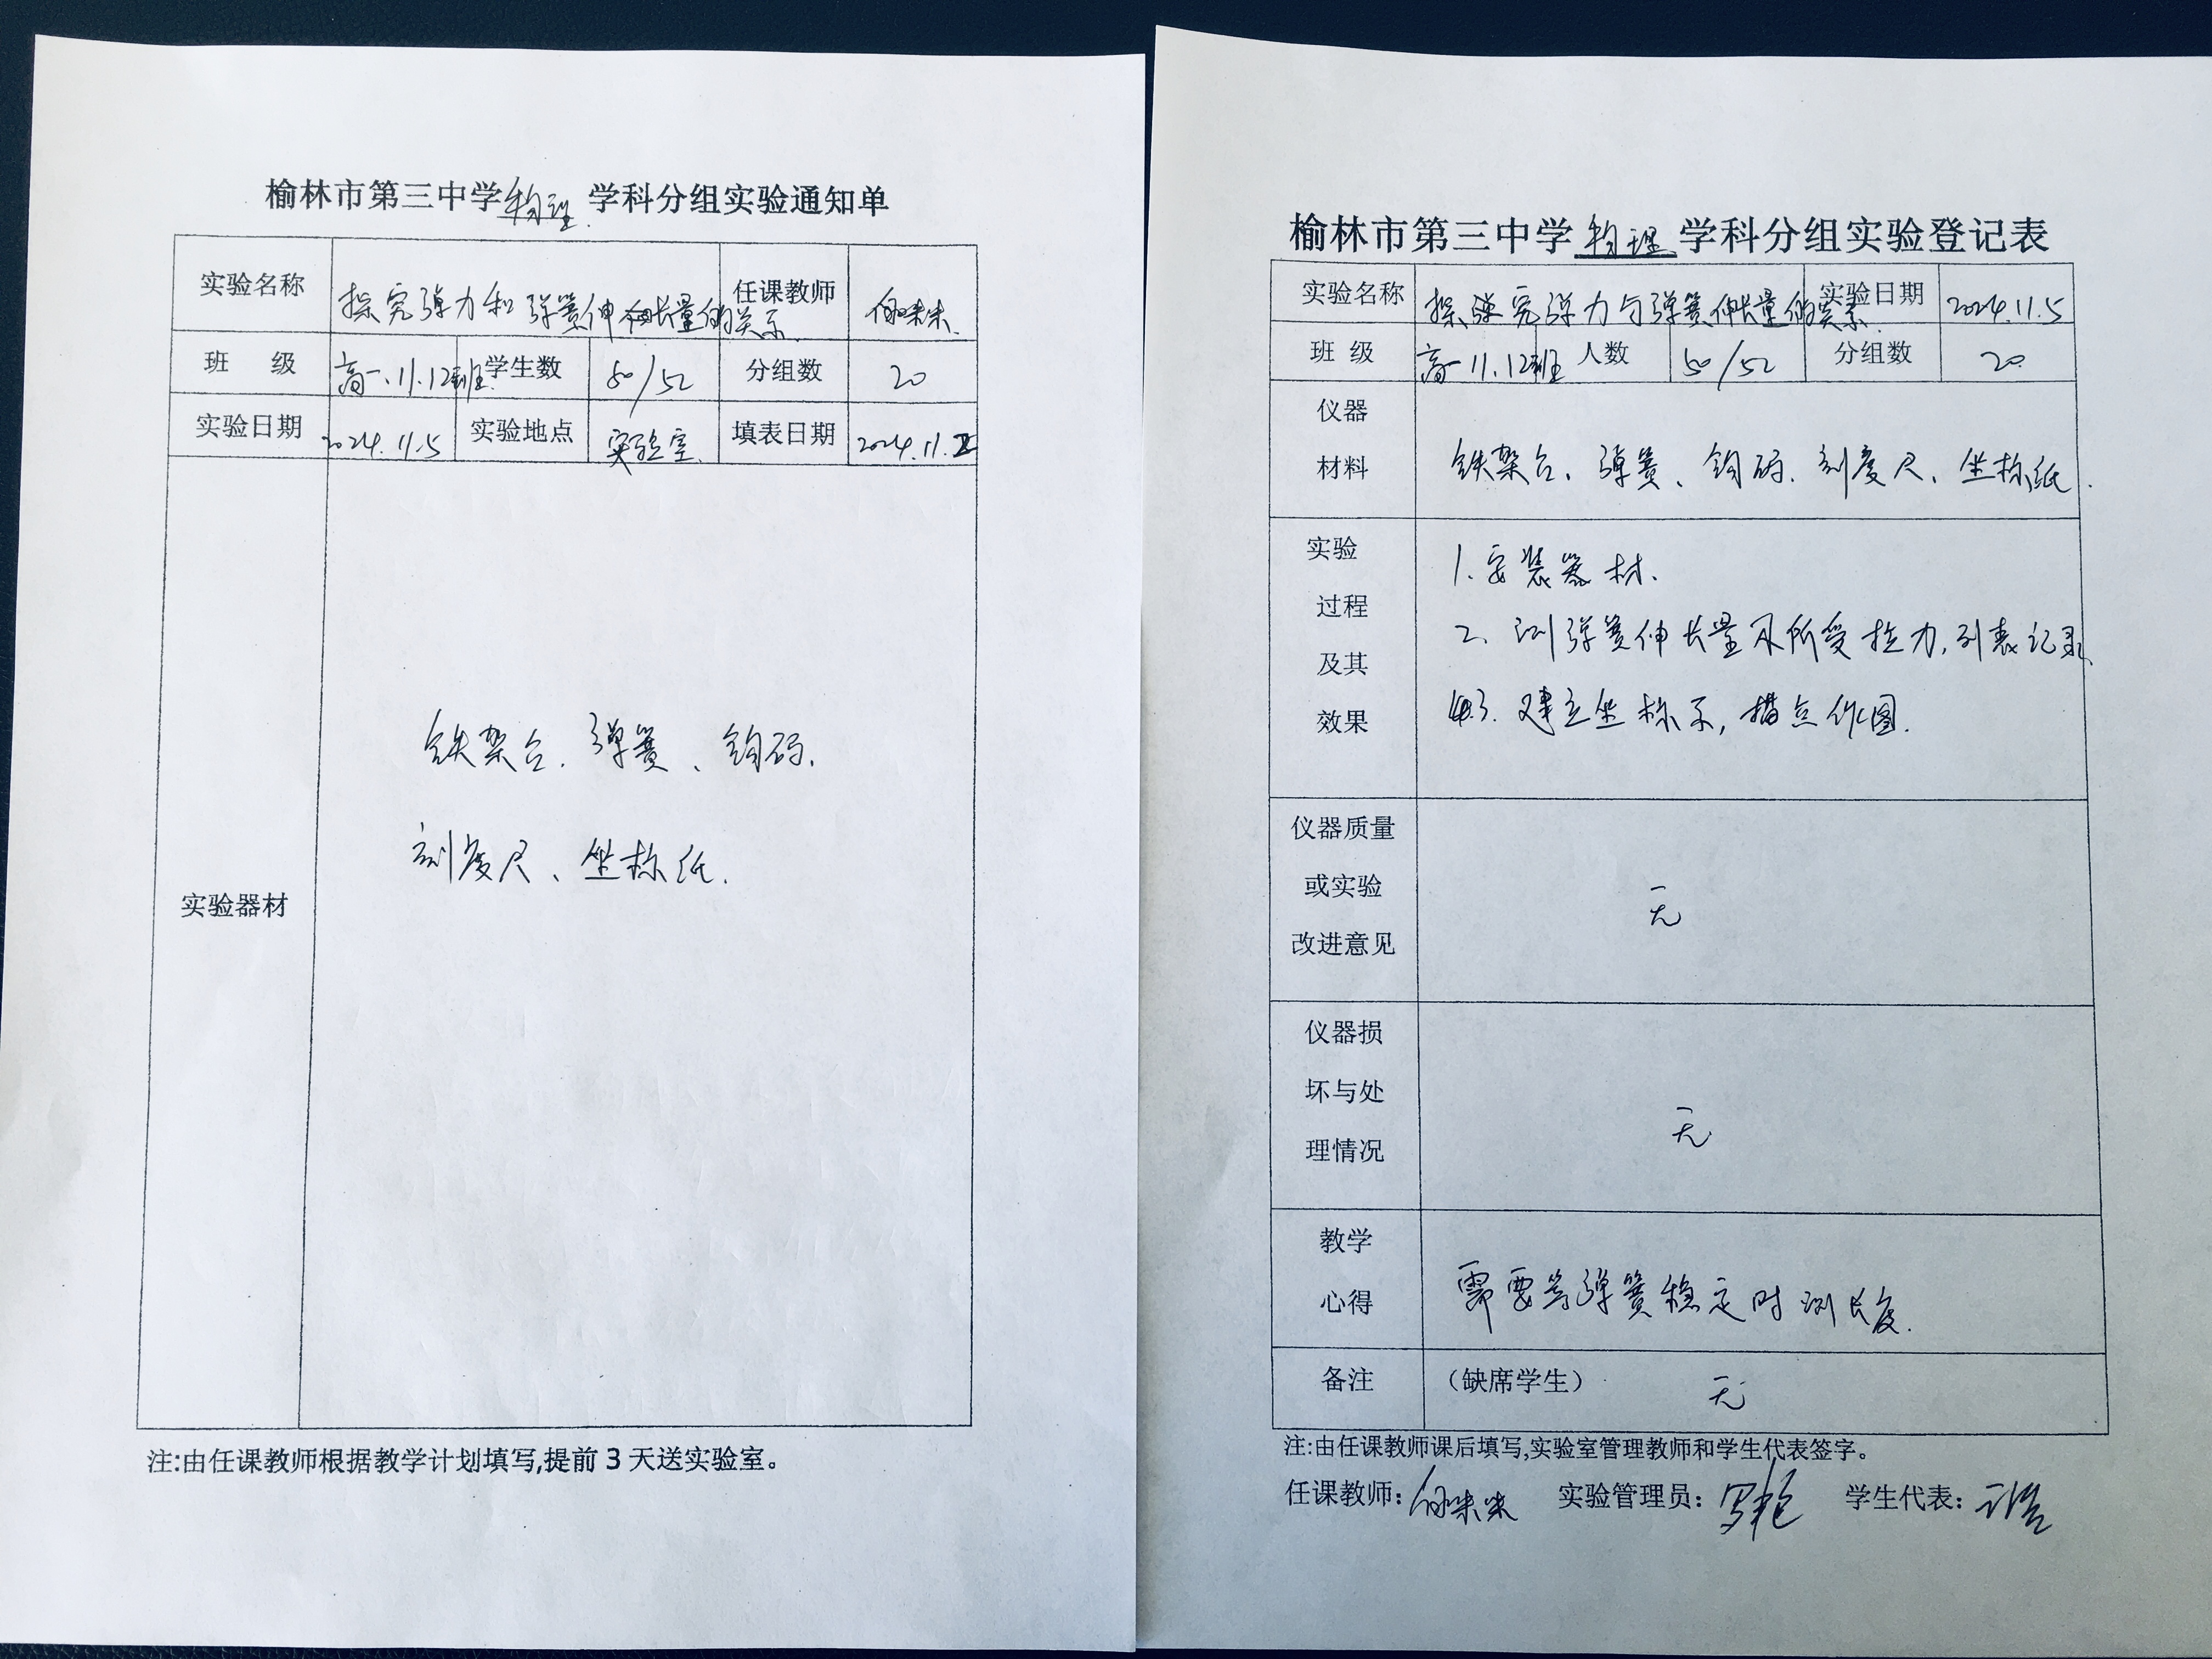 榆林市第三中学物理学科分组实验通知单
实验名称 探究弹力和弹簧伸长量的关系 任课教师
班 级 高一.11.12班 学生数 50/52 分组数 20
实验日期 2024.11.5 实验地点 实验室. 填表日期 2024.11.2
实验器材
铁架台、弹簧、钩码、
刻度尺、坐标纸.
注:由任课教师根据教学计划填写,提前 3 天送实验室。
榆林市第三中学物理学科分组实验登记表
实验名称 探究弹力与弹簧伸长量的关系. 实验日期 2024.11.5
班 级 高一 11.12班 人数 50/52 分组数 20
仪器
材料
铁架台、弹簧、钩码、刻度尺、坐标纸.
实验
过程
及其
效果
1.安装器材.
2、测弹簧伸长量及所受拉力,列表记录
3.建立坐标系,描点作图.
仪器质量
或实验
改进意见
无
仪器损
坏与处
理情况
无
教学
心得
需要等弹簧稳定时测长度.
备注 （缺席学生） 无
注:由任课教师课后填写,实验室管理教师和学生代表签字。
任课教师: 实验管理员: 学生代表: